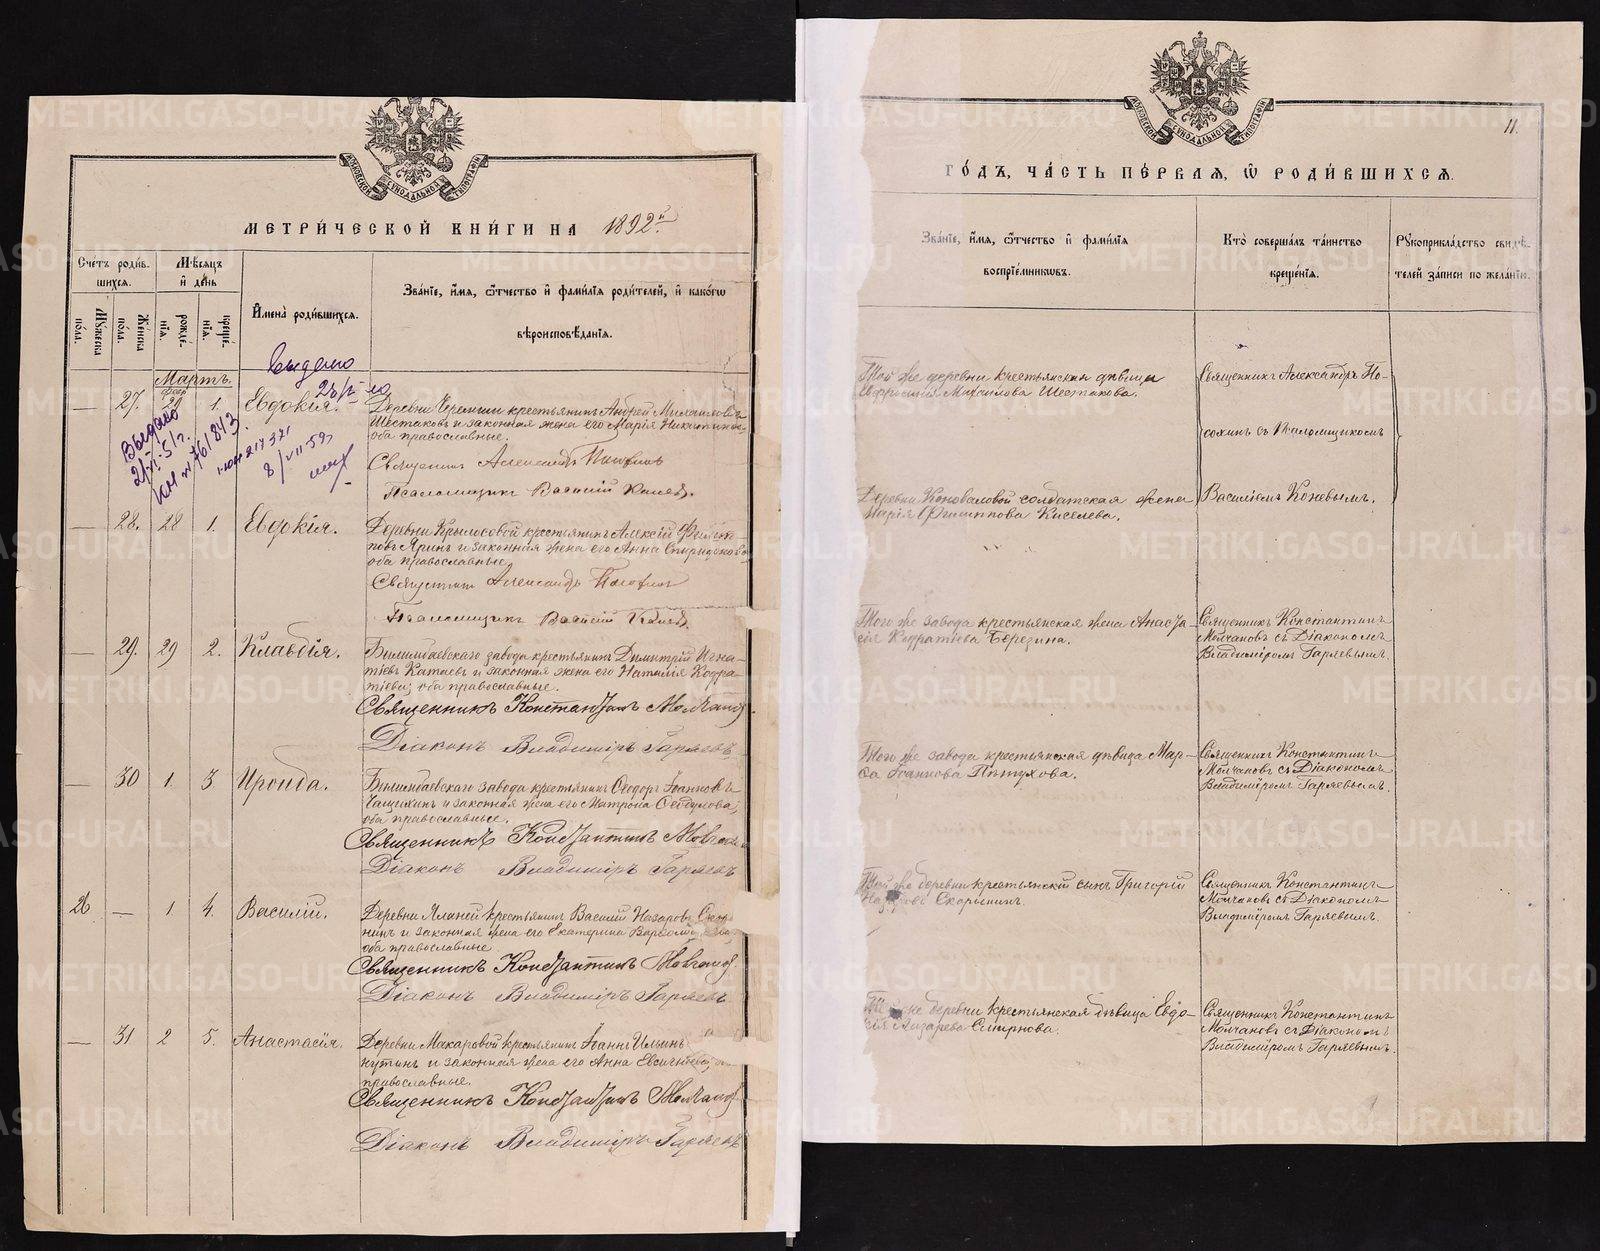 МЕТРИ́ЧЕСКОЙ КНИ́ГИ НА 1892й
Сче́тъ роди́в-
шихся.
Мѣ́сяцъ
и́ де́нь
Мꙋ́жеска
по́ла.
Же́нска
по́ла.
рожде́-
нїѧ.
креще́-
нїѧ.
И҆мена̀ роди́вшихсѧ.
Зва́нїе, и҆́мѧ, ѻ҆́тчество и҆ фами́лїѧ роди́телей, и҆ како́гѡ
вѣроисповѣ́данїѧ.
Выдано
Мартъ.
— 27. 1. Евдокія.
Деревни Черемши крестьянинъ Андрей Михаиловъ
Шестаковъ и законная жена его Марія
оба православные.
Священникъ Александръ
Псаломщикъ Василій Коневъ.
Выдано
8/VII-59
— 28. 28 1. Евдокія.
Деревни Крылосовой крестьянинъ Алексій Филип-
повъ Яринъ и законная жена его Анна Спиридонова
оба православные.
Священникъ Александръ
Псаломщикъ Василій Коневъ.
— 29. 29 2. Клавдія.
Билимбаевскаго завода крестьянинъ Димитрій Игна-
тіевъ Катаевъ и законная жена его Наталія Кодра-
тіева; оба православные.
Священникъ Константинъ Молчановъ
Діаконъ Владиміръ Гаряевъ
— 30 1. 3 Ироида.
Билимбаевскаго завода крестьянинъ Ѳеодоръ Іоанновъ
Чащихинъ и законная жена его Матрона
оба православные.
Священникъ Константинъ Молчановъ
Діаконъ Владиміръ Гаряевъ
26 — 1. 4. Василій.
Деревни крестьянинъ Василій Назаровъ Скоры-
нинъ и законная жена его Екатерина
оба православные
Священникъ Константинъ Молчановъ
Діаконъ Владиміръ Гаряевъ
— 31 2 5. Анастасія.
Деревни Макаровой крестьянинъ Іоаннъ Ильинъ
и законная жена его Анна
православные.
Священникъ Константинъ Молчановъ
Діаконъ Владиміръ Гаряевъ
МОСКОВСКОЙ СѴНОДАЛЬНОЙ ТИПОГРАФІИ
11.
ГО́ДЪ, ЧА́СТЬ ПЕ́РВАЯ, Ѽ РОДИ́ВШИХСЯ.
Зва́нїе, и҆́мѧ, ѻ҆́тчество и҆ фами́лїѧ
воспрїе́мникѡвъ.
Кто̀ соверша́лъ та́инство
креще́нїѧ.
Рꙋкоприкла́дство свидѣ́-
телей за́писи по жела́нїю.
Той же деревни крестьянская дѣвица
Евфросинія Михаилова Шестакова.
Священникъ Александръ По-
с Псаломщикомъ
Деревни Коноваловой солдатская жена
Марія Филиппова Киселева.
Василіемъ Коневымъ.
Того же завода крестьянская жена Анаста-
сія Кодратіева Березина.
Священникъ Константинъ
Молчановъ съ Діакономъ
Владиміромъ Гаряевымъ.
Того же завода крестьянская дѣвица Мар-
Іоаннова Пѣтухова.
Священникъ Константинъ
Молчановъ съ Діакономъ
Владиміромъ Гаряевымъ.
Той же деревни крестьянскій сынъ Григорій
Назаровъ Скорынинъ.
Священникъ Константинъ
Молчановъ съ Діакономъ
Владиміромъ Гаряевымъ.
Той же деревни крестьянская дѣвица Евдо-
кія Лазарева Смирнова.
Священникъ Константинъ
Молчановъ съ Діакономъ
Владиміромъ Гаряевымъ.
METRIKI.GASO-URAL.RU